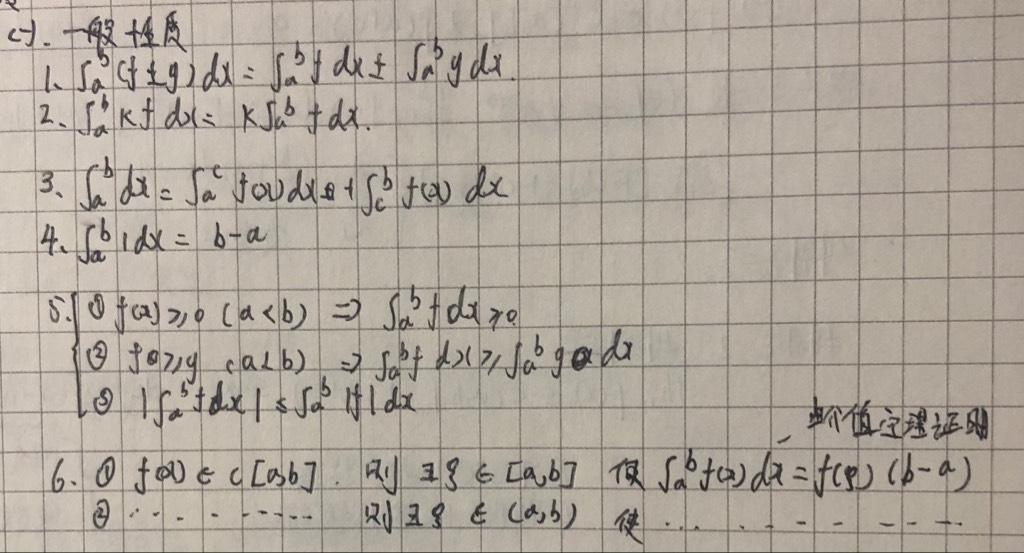 (一). 一般性质
1. ∫ₐᵇ (f ± g) dx = ∫ₐᵇ f dx ± ∫ₐᵇ g dx.
2. ∫ₐᵇ kf dx = k∫ₐᵇ f dx.
3. ∫ₐᵇ dx = ∫ₐᶜ f(x) dx + ∫꜀ᵇ f(x) dx
4. ∫ₐᵇ 1 dx = b-a
5. ① f(x) ≥ 0 (a < b) ⇒ ∫ₐᵇ f dx ≥ 0
② f ≥ g (a < b) ⇒ ∫ₐᵇ f dx ≥ ∫ₐᵇ g dx
③ |∫ₐᵇ f dx| ≤ ∫ₐᵇ |f| dx
介值定理证明
6. ① f(x) ∈ C[a,b]. 则 ∃ξ ∈ [a,b] 使 ∫ₐᵇ f(x) dx = f(ξ) (b-a)
② ............ 则 ∃ξ ∈ (a,b) 使 ............